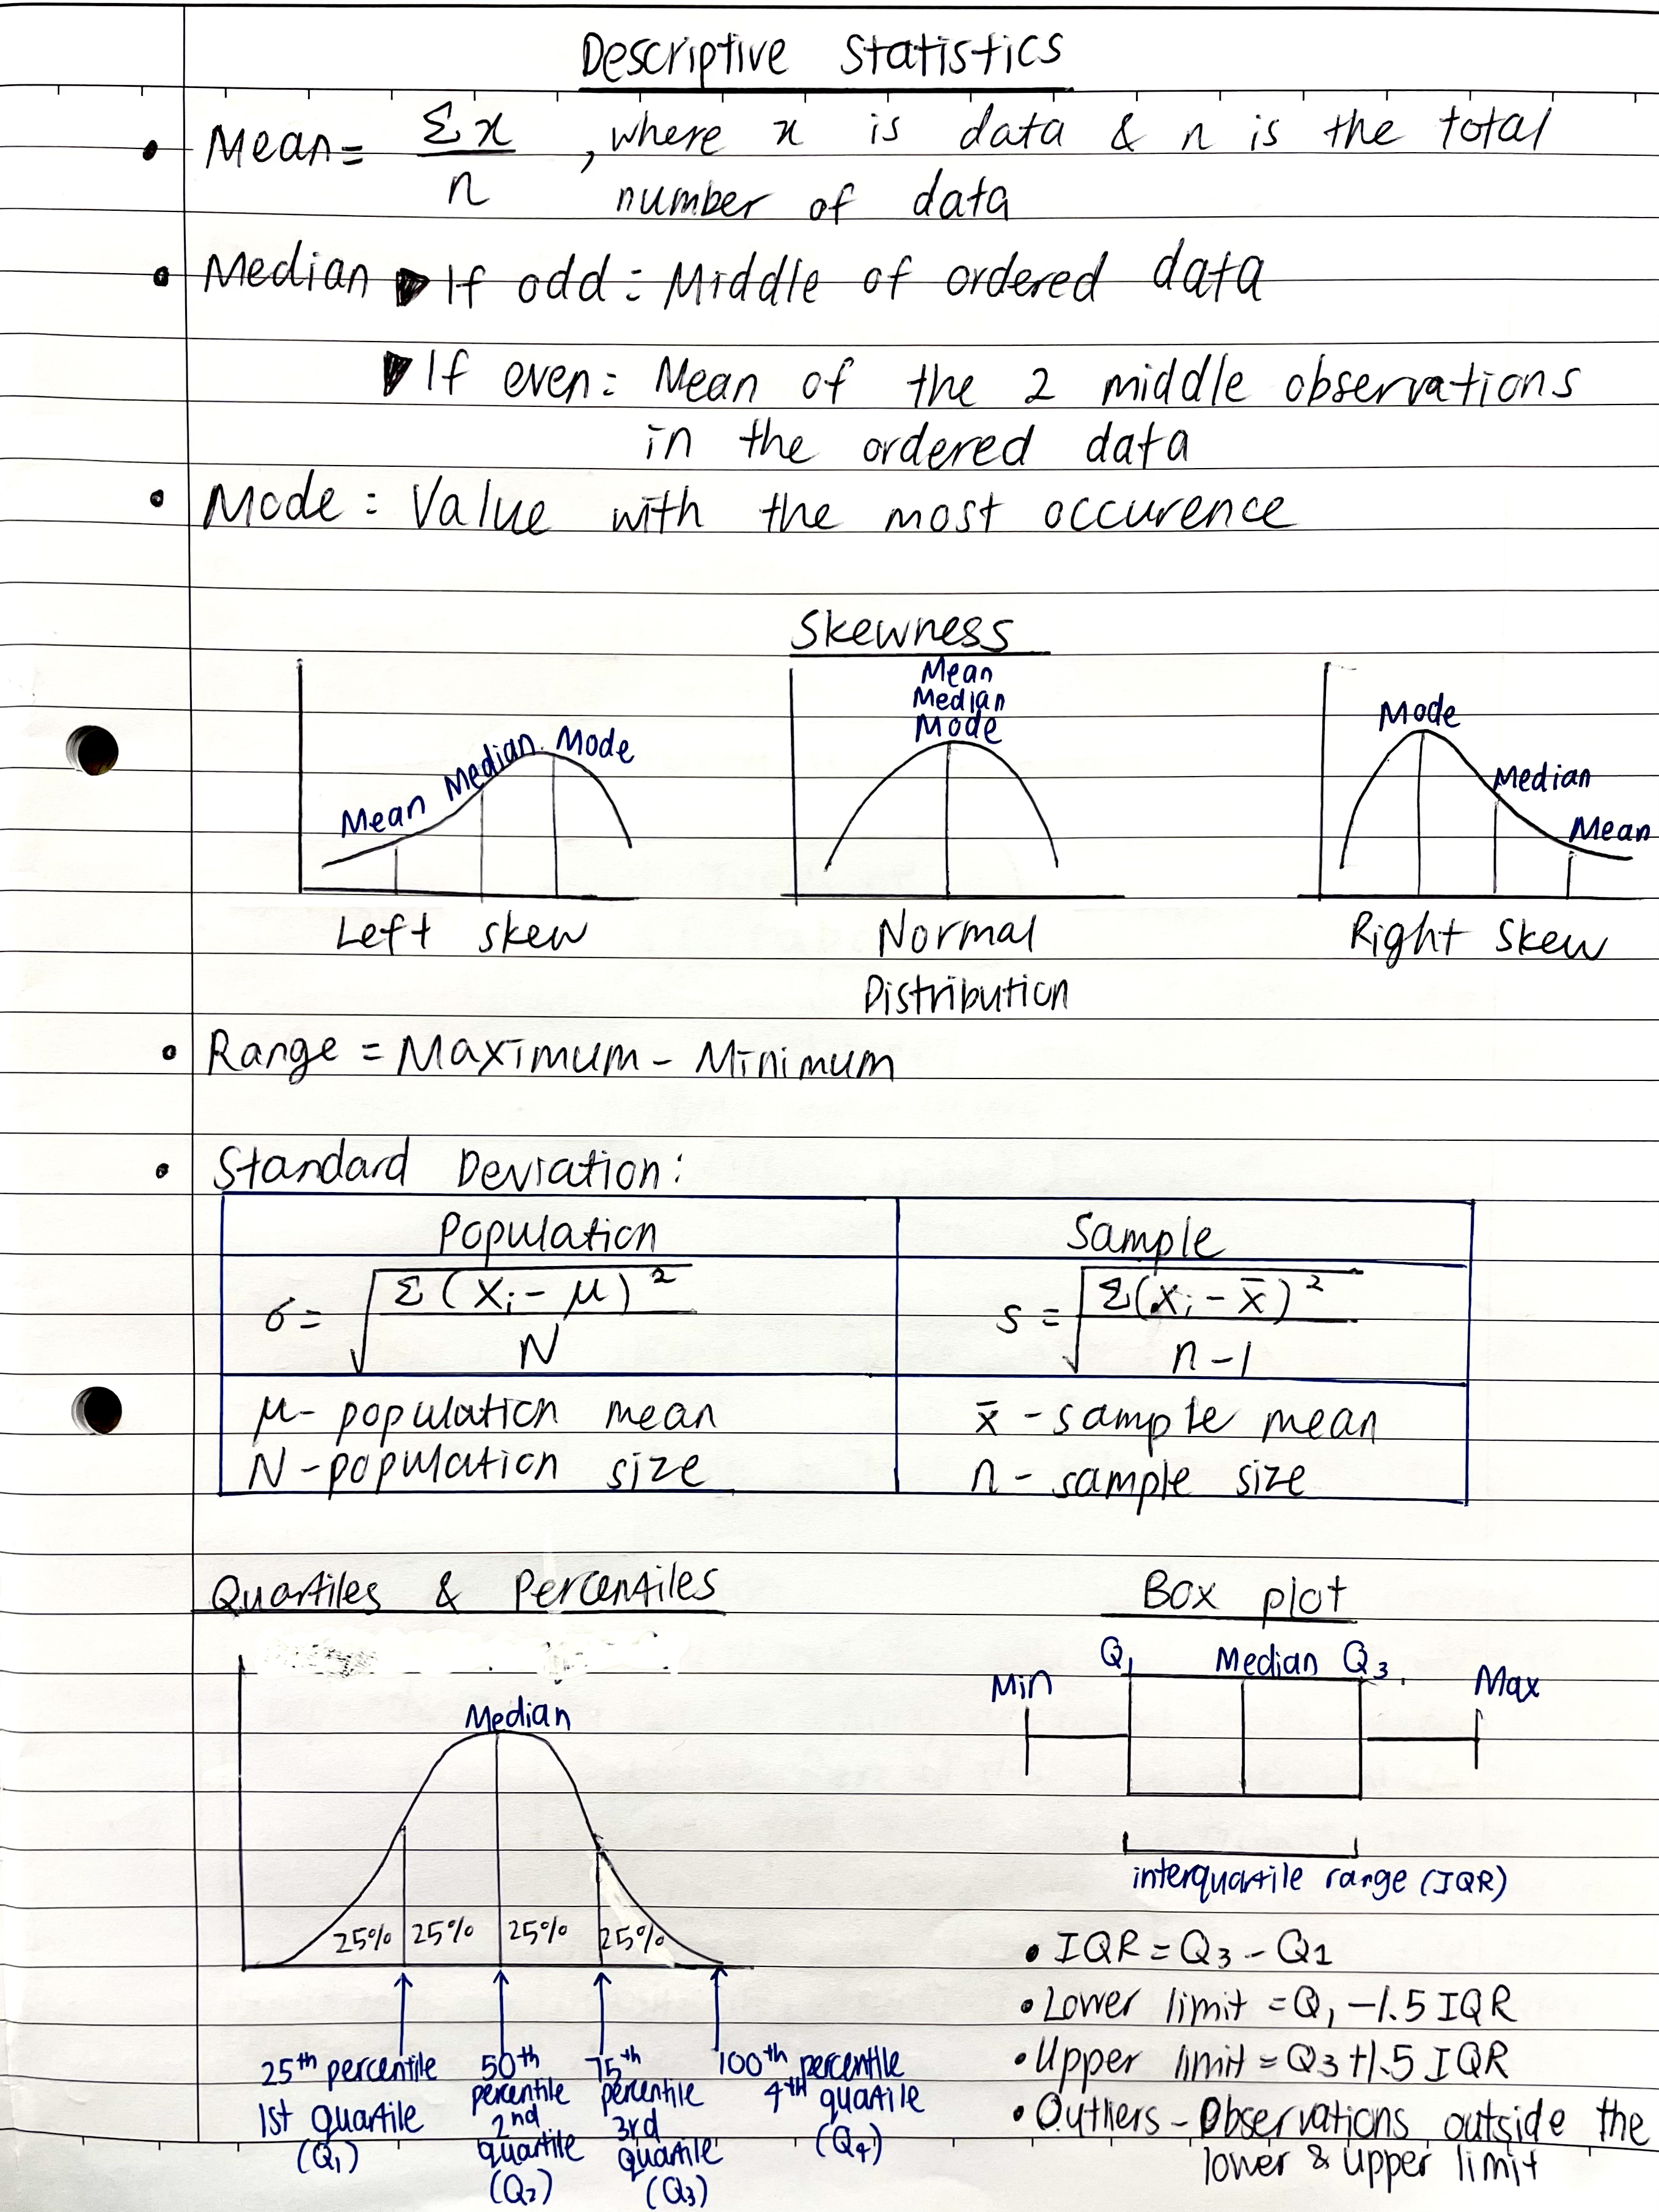 Descriptive Statistics
• Mean = Σx / n , where x is data & n is the total
number of data
• Median ▶ If odd : Middle of ordered data
▼ If even : Mean of the 2 middle observations
in the ordered data
• Mode : Value with the most occurence
Skewness
Mean Median Mode
Left skew
Mean
Median
Mode
Normal
Distribution
Mode
Median
Mean
Right skew
• Range = Maximum - Minimum
• Standard Deviation :
Population Sample
σ = √(Σ(Xi - μ)² / N) s = √(Σ(xi - x̄)² / n-1)
μ - population mean x̄ - sample mean
N - population size n - sample size
Quartiles & Percentiles
Median
25% 25% 25% 25%
25th percentile
1st quartile
(Q1)
50th
percentile
2nd
quartile
(Q2)
75th
percentile
3rd
quartile
(Q3)
100th percentile
4th quartile
(Q4)
Box plot
Min Q1 Median Q3 Max
interquartile range (IQR)
• IQR = Q3 - Q1
• Lower limit = Q1 - 1.5 IQR
• Upper limit = Q3 + 1.5 IQR
• Outliers - Observations outside the
lower & upper limit